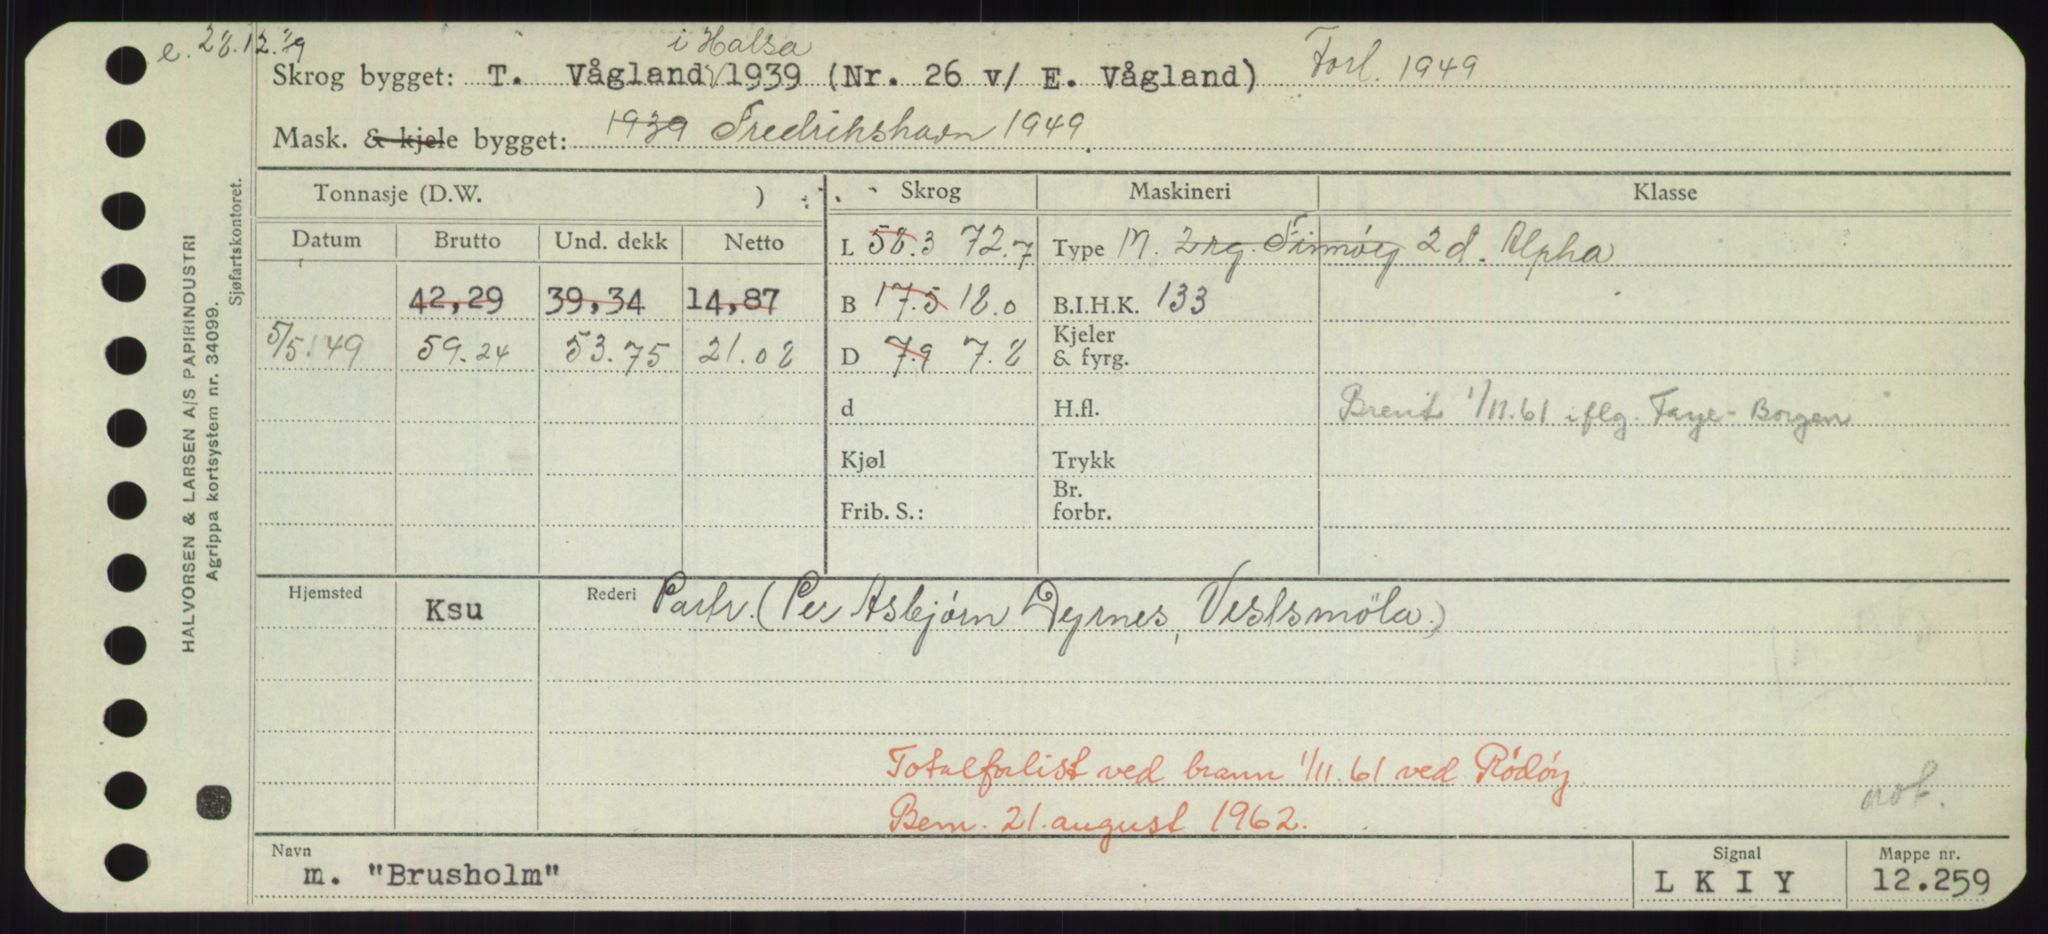 e. 28.12.
i Halsa
Skrog bygget: T. Vågland 1939 (Nr. 26 v/ E. Vågland) Forl. 1949
Mask. & kjele bygget: 1939 Fredrikshavn 1949.
Tonnasje (D.W. ) Skrog Maskineri Klasse
Datum Brutto Und. dekk Netto L 58.3 72.7 Type M. 2 rg. Finnøy 2 d. Alpha
42,29 39,34 14,87 B 17.5 18.0 B.I.H.K. 133
5/5.'49 59.24 53.75 21.08 D 7.9 7.8 Kjeler & fyrg.
d H.fl. Brent 1/11.61 iflg. Faye-Borgen
Kjøl Trykk
Frib. S.: Br. forbr.
Hjemsted Ksu Rederi Partr. (Per Asbjørn Dyrnes, Vestsmöla.)
Totalforlist ved brann 1/11.61 ved Rødøy
not.
Bem. 21. august 1962.
Navn m. "Brusholm" Signal L K I Y Mappe nr. 12.259
HALVORSEN & LARSEN A/S PAPIRINDUSTRI
Agrippa kortsystem nr. 34099.
Sjøfartskontoret.